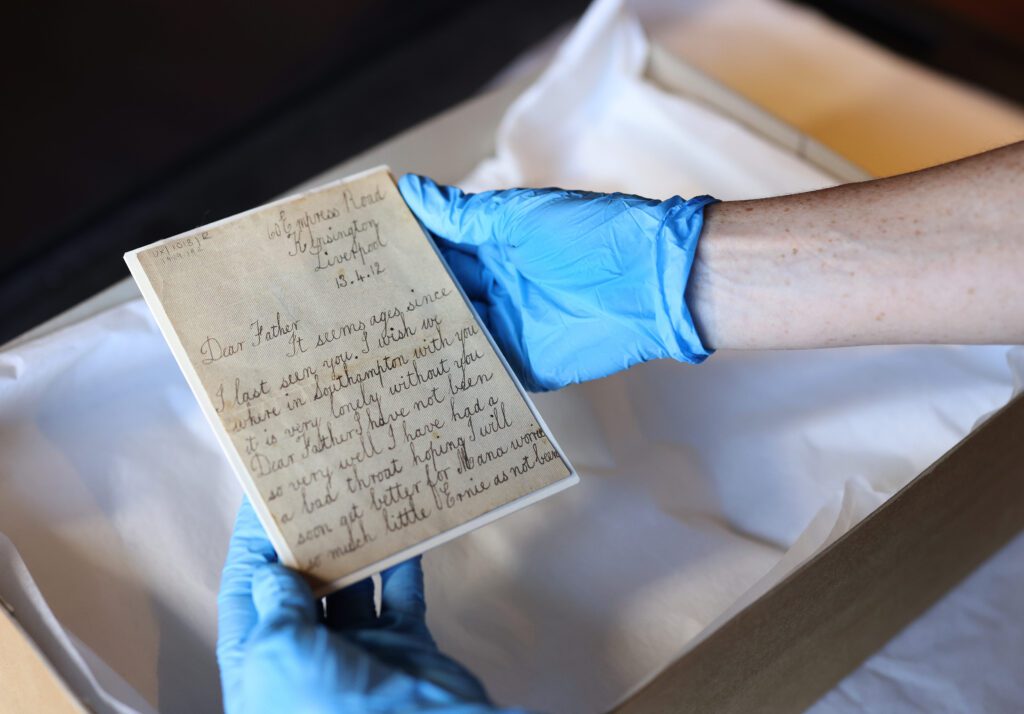 60 Empress Road
Kensington
Liverpool
13.4.12
Dear Father
It seems ages since
I last seen you. I wish we
where in Southampton with you
it is very lonely without you
Dear Father I have not been
so very well I have had a
a bad throat hoping I will
soon get better for Mana worries
so much little Ernie as not been